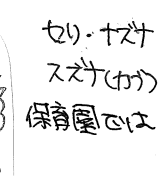 セリ・ナズナ
スズナ(カブ)
保育園では